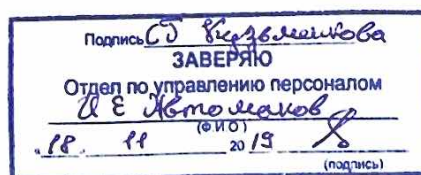 Подпись СТ Кузьменкова
ЗАВЕРЯЮ
Отдел по управлению персоналом
И Е Автомаков
(Ф.И.О)
"18. 11 20 19
(подпись)